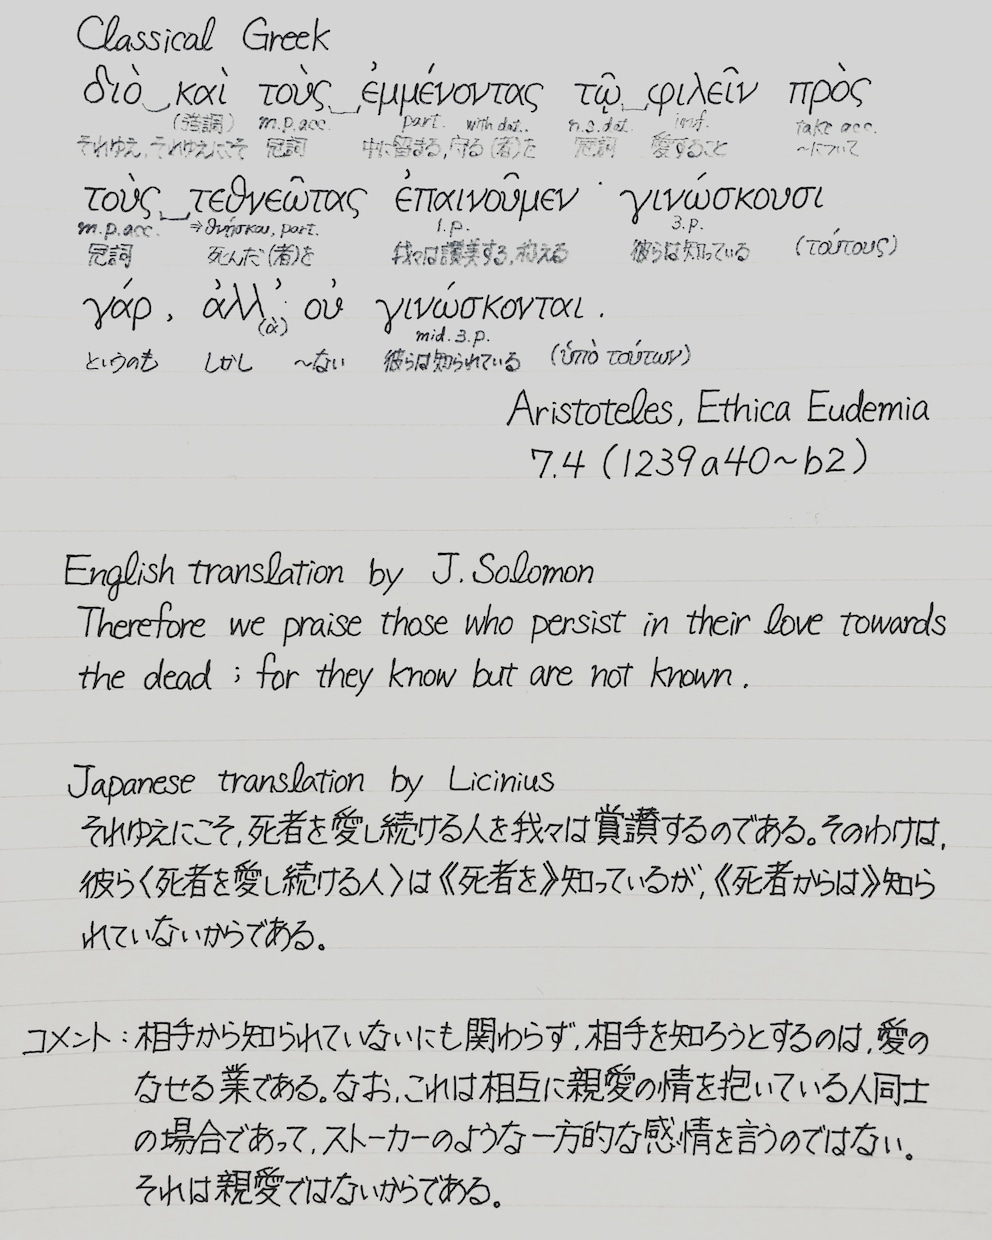 Classical Greek
διὸ καὶ τοὺς ἐμμένοντας τῷ φιλεῖν πρὸς
(強調) m.p.acc. part. with dat. n.s.dat. inf. take acc.
それゆえ,それゆえにこそ 冠詞 中に留まる,守る(者)を 冠詞 愛すること 〜について
τοὺς τεθνεῶτας ἐπαινοῦμεν · γινώσκουσι
m.p.acc. ⇒θνήσκω, part. 1.p. 3.p.
冠詞 死んだ(者)を 我々は讃美する,称える 彼らは知っている (τούτους)
γάρ, ἀλλ' οὐ γινώσκονται.
(ὰ) mid.3.p.
というのも しかし 〜ない 彼らは知られている (ὑπὸ τούτων)
Aristoteles, Ethica Eudemia
7.4 (1239a40~b2)
English translation by J. Solomon
Therefore we praise those who persist in their love towards
the dead ; for they know but are not known.
Japanese translation by Licinius
それゆえにこそ,死者を愛し続ける人を我々は賞讃するのである。そのわけは,
彼ら〈死者を愛し続ける人〉は《死者を》知っているが,《死者からは》知ら
れていないからである。
コメント:相手から知られていないにも関わらず,相手を知ろうとするのは,愛の
なせる業である。なお,これは相互に親愛の情を抱いている人同士
の場合であって,ストーカーのような一方的な感情を言うのではない。
それは親愛ではないからである。